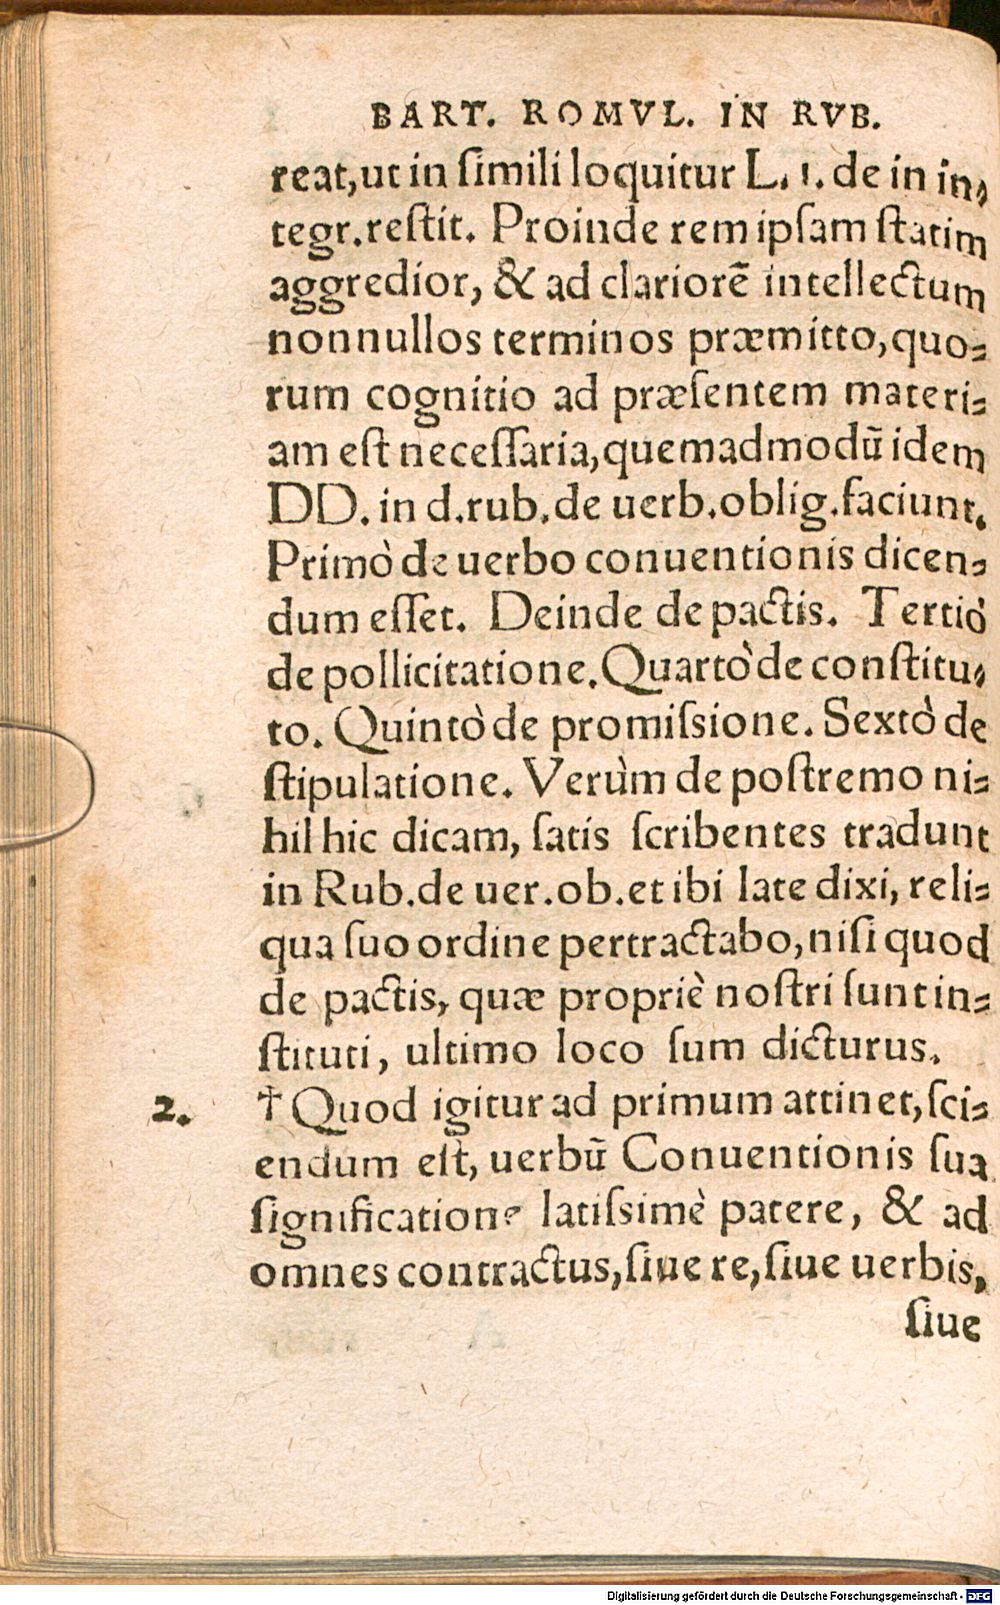 BART. ROMVL. IN RVB.
reat,ut in ſimili loquitur L. 1. de in in-
tegr.reſtit. Proinde rem ipſam ſtatim
aggredior, & ad clariorē intellectum
nonnullos terminos præmitto,quo-
rum cognitio ad præſentem materi-
am eſt neceſſaria,quemadmodū idem
DD. in d.rub.de uerb.oblig.faciunt.
Primò de uerbo conuentionis dicen-
dum eſſet. Deinde de pactis. Tertiò
de pollicitatione.Quartò de conſtitu-
to. Quintò de promiſsione. Sextò de
ſtipulatione. Verùm de poſtremo ni-
hil hic dicam, ſatis ſcribentes tradunt
in Rub.de uer.ob.et ibi late dixi, reli-
qua ſuo ordine pertractabo,niſi quod
de pactis, quæ propriè noſtri ſunt in-
ſtituti, ultimo loco ſum dicturus.
2. † Quod igitur ad primum attinet,ſci-
endum eſt, uerbū Conuentionis ſua
ſignificatione latiſsimè patere, & ad
omnes contractus,ſiue re,ſiue uerbis,
ſiue
Digitalisierung gefördert durch die Deutsche Forschungsgemeinschaft - DFG